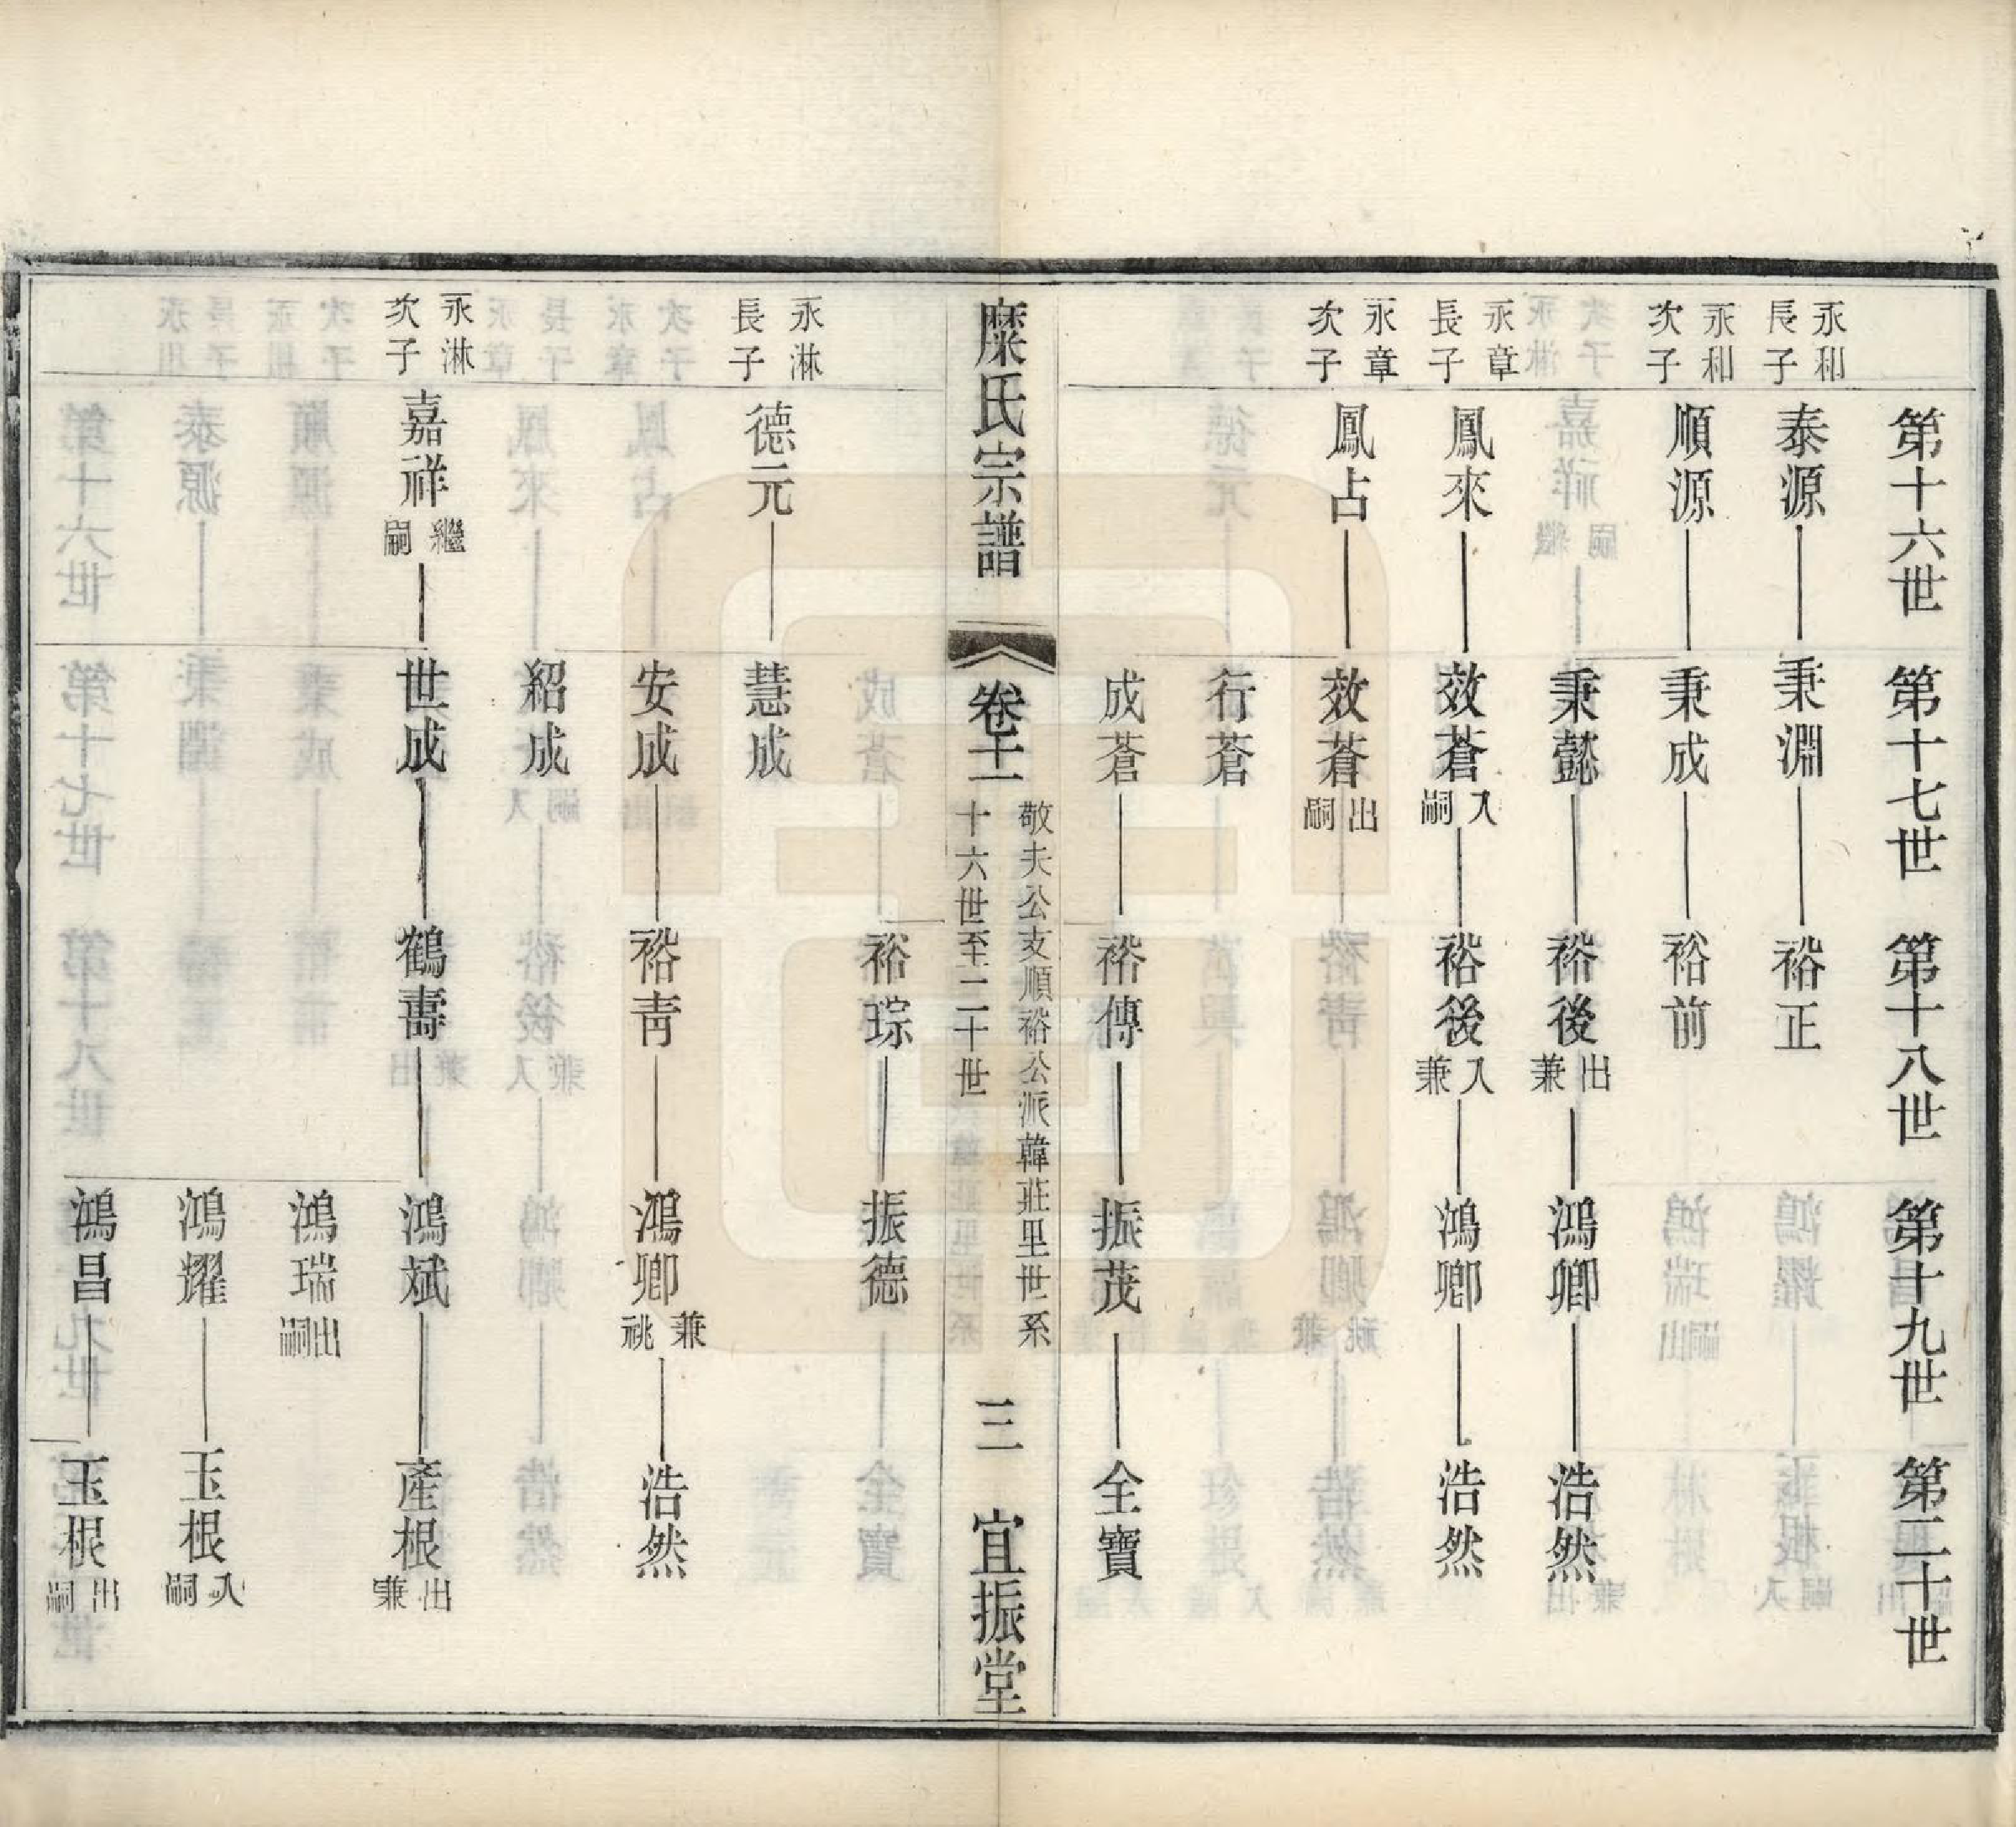 第十六世 第十七世 第十八世 第十九世 第二十世
永和長子 泰源 秉淵 裕正
永和次子 順源 秉成 裕前
秉懿 裕後 出兼 鴻卿 浩然
永章長子 鳳來 效蒼 入嗣 裕後 入兼 鴻卿 浩然
永章次子 鳳占 效蒼 出嗣
行蒼
成蒼 裕傳 振茂 全寶
糜氏宗譜 卷十一 敬夫公支順裕公派韓莊里世系 十六世至二十世 三 宜振堂
裕琮 振德
永淋長子 德元 慧成
安成 裕青 鴻卿 兼祧 浩然
紹成
永淋次子 嘉祥 繼嗣 世成 鶴壽 鴻斌 產根 出兼
鴻瑞 出嗣
鴻耀 玉根 入嗣
鴻昌 玉根 出嗣